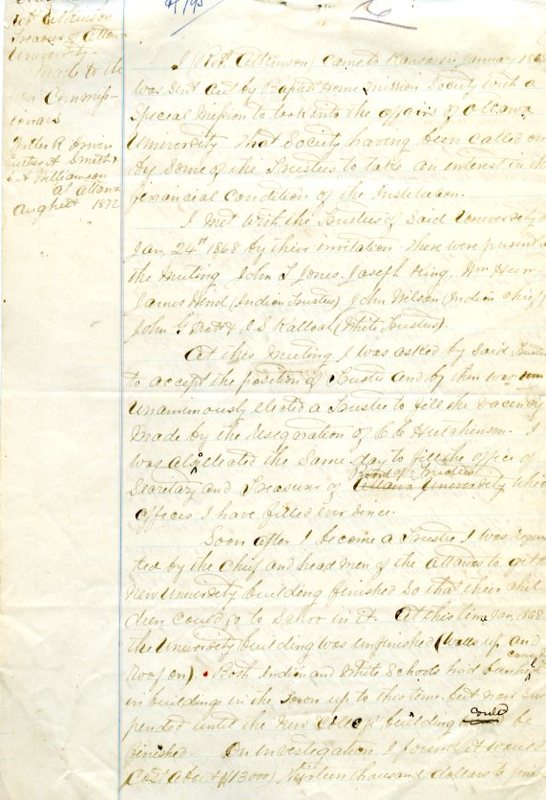 Atkinson
Treasurer of Ottawa
University
made to the
Commiss-
ioners
A Smith &
A Williamson
at Ottawa
August 1872
I (Robt Atkinson) came to Kansas in January 186
was sent out by Baptist Home Mission Society with a
Special Mission to look into the affairs of Ottawa
University that Society having been called on
by some of the Trustees to take an interest in th
financial condition of the Institution.
I met with the Trustees of Said University
Jan 24th 1868 by their invitation there were present a
the meeting John T Jones. Joseph King, Wm Hurr
James Wind (Indian Trustees) John Wilson (Indian Chief)
John G Pratt & I S Kalloch (White Trustees).
At this meeting I was asked by said Trustees
to accept the position of Trustee and by them was
unanimously elected a Trustee to fill the vacency
made by the resegnation of C C Hutchinson. I
was also elected the same day to fill the office of
Board of Trustees
Secretary and Treasurer of Ottawa University whic
offices I have filled ever sence.
Soon after I become a Trustee I was reques
ted by the chief and head men of the Ottawas to get the
new University building finished so that their chil
dren could go to school in it. At this time Jan 1868
the University building was unfinished (walls up and
roof on). Both Indian and White Schools had been
in building in the Town up to this time but now sus
pended until the new College building could be
finished. On investigation I found it would
cost about $13000) thirteen thousand dollars to finish